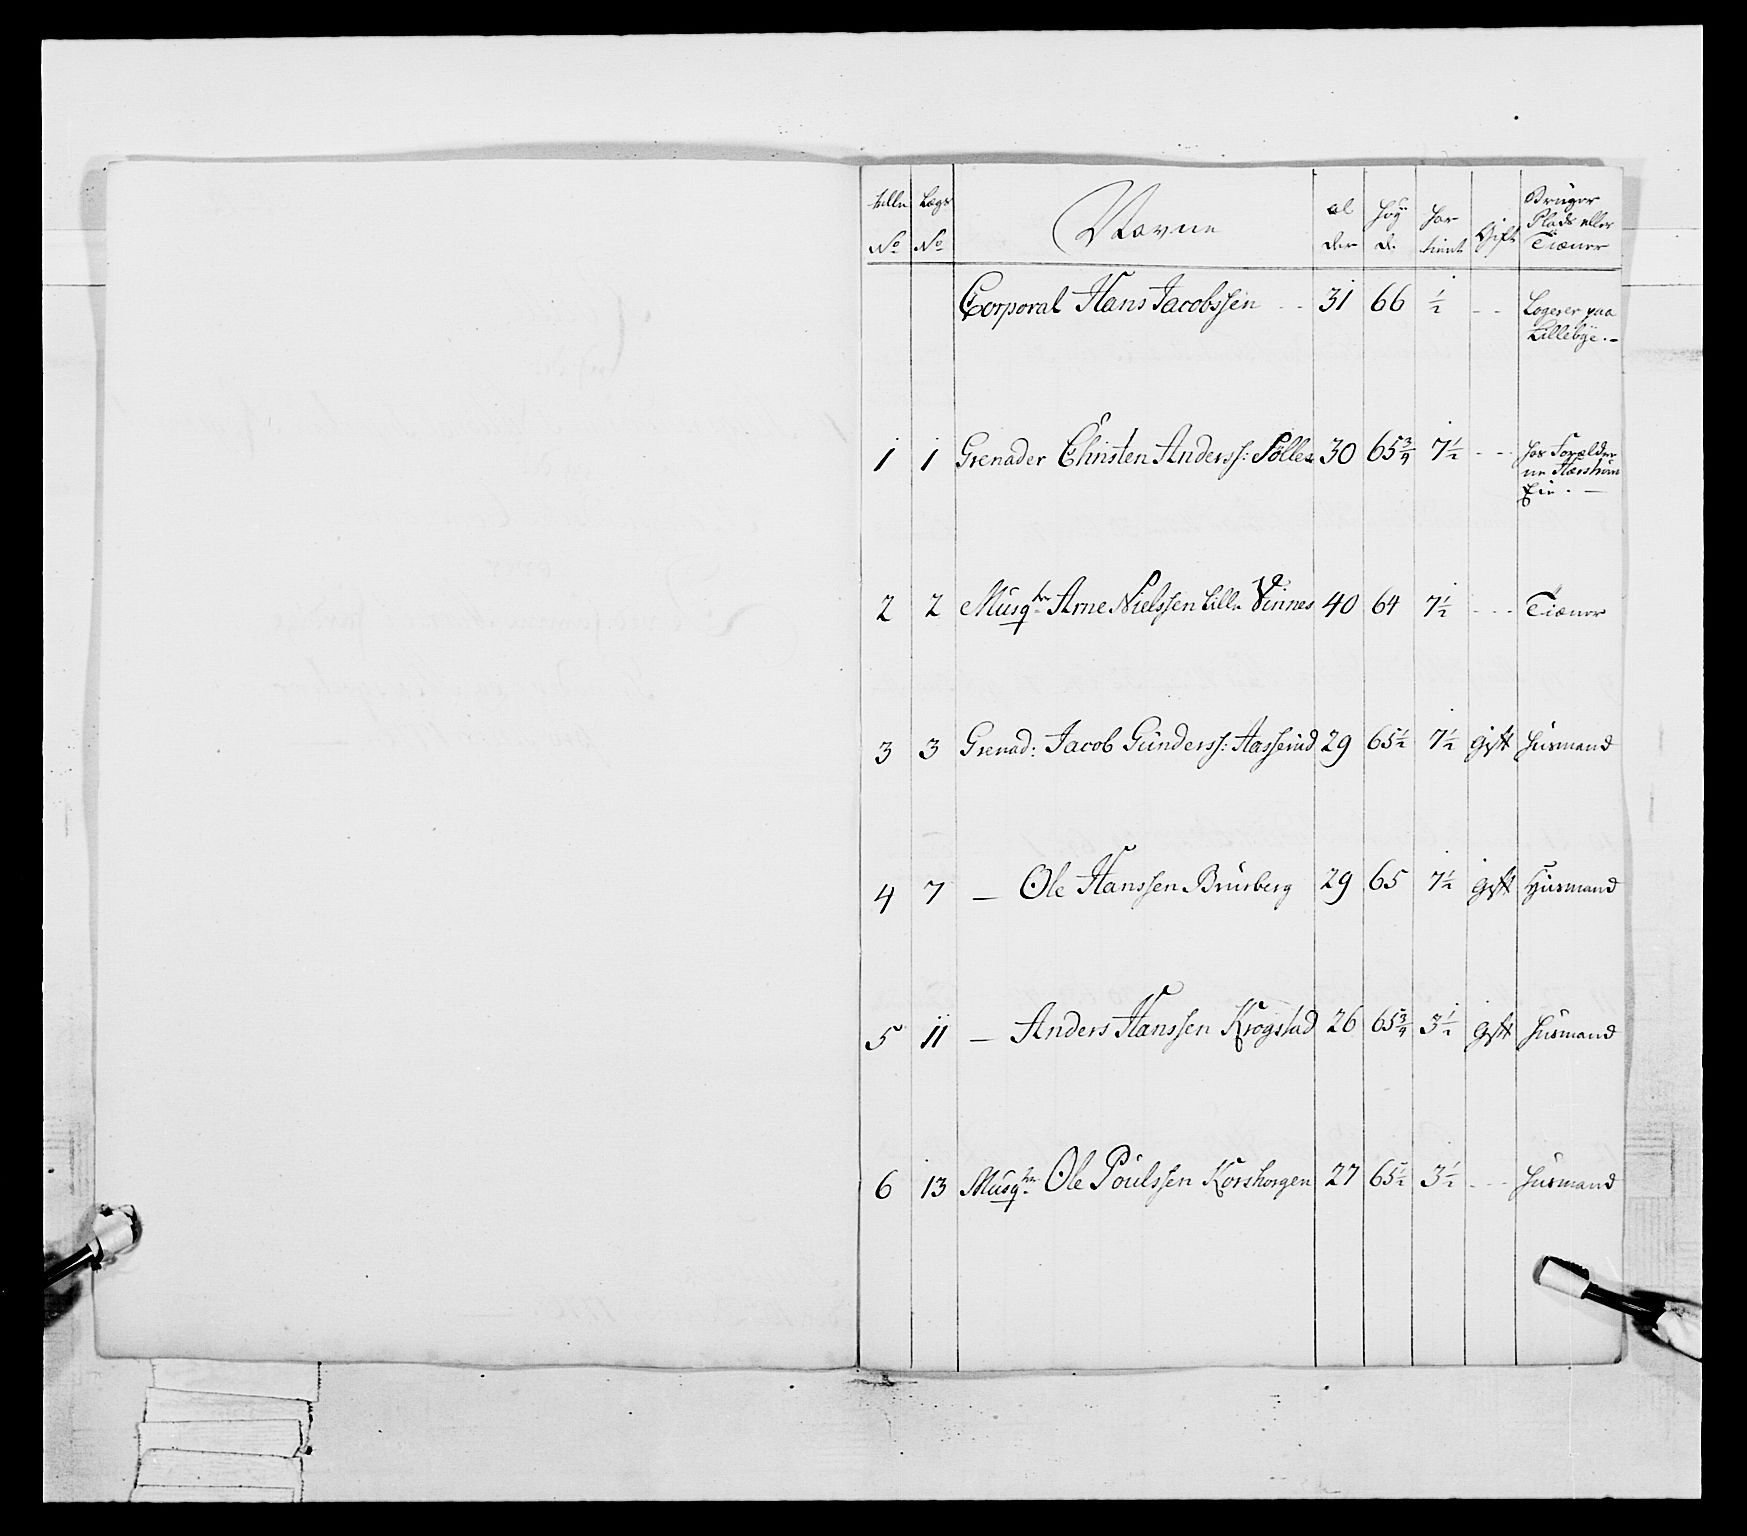 telle Lægs Navne al høy har Gift Bruger
No No der de tient Plads eller
Tiæner
Corporal Hans Jacobssen - - 31 66 1/2 - - Logerer paa
Lillebye. -
1 1 Grenader Christen Anderss: Sølle 30 65 3/4 7 1/2 - - hos Forælder
ne
Eie. -
2 2 Musqtr Arne Nielssen Lille Vinnes 40 64 7 1/2 - - - Tiæner
3 3 Grenad: Jacob Gunderss: Aasserud 29 65 1/2 7 1/2 gift husmand
4 7 — Ole Hanssen Brusberg 29 65 7 1/2 gift Husmand
5 11 — Anders Hanssen Krogstad 26 65 3/4 3 1/2 gift husmand
6 13 Musqtr Ole Poulssen Korshorgen 27 65 1/2 3 1/2 - - - husmand